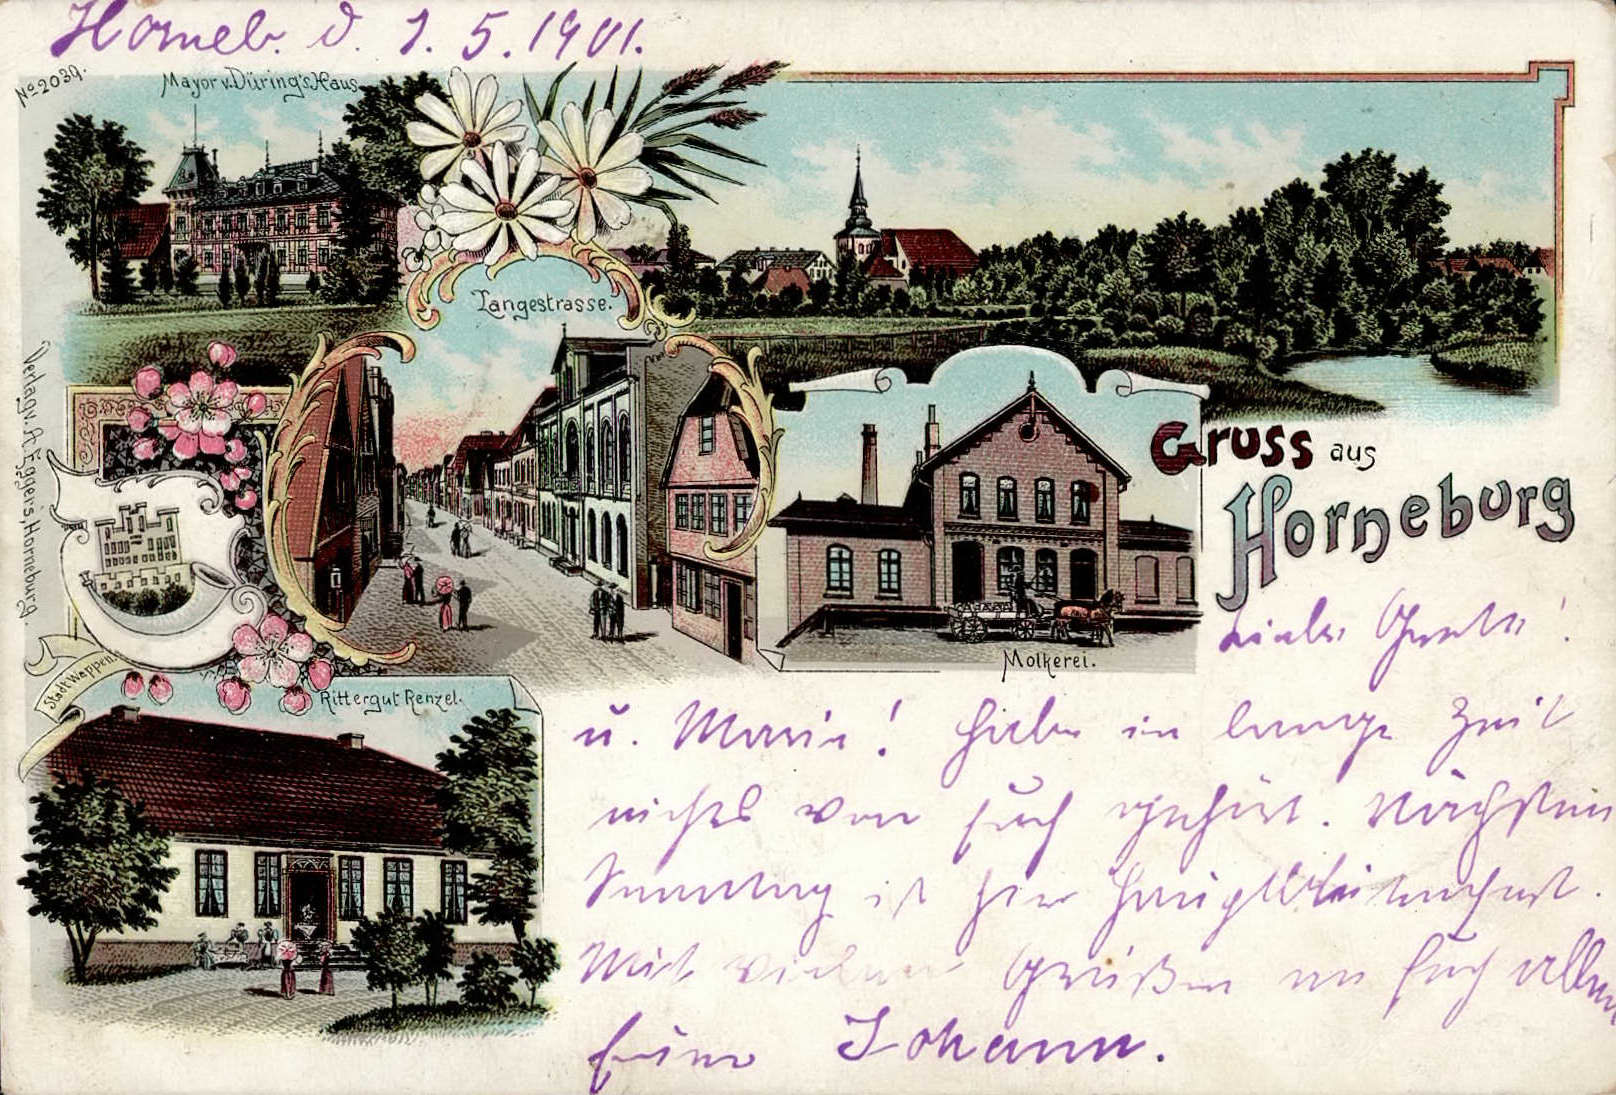 Horneb. d. 1.5.1901.
No 2039.
Mayor v. Düring's Haus
Langestrasse.
Verlag v. A. Eggers, Horneburg.
Stadt Wappen.
Gruss aus
Horneburg
Molkerei.
Rittergut Renzel.
Liebe Grete!
u. Marie! Habe in lange Zeit
nichts von Euch gehört. Nächsten
Sonntag ist hier
Mit vielen Grüßen an Euch allen
Euer Johann.